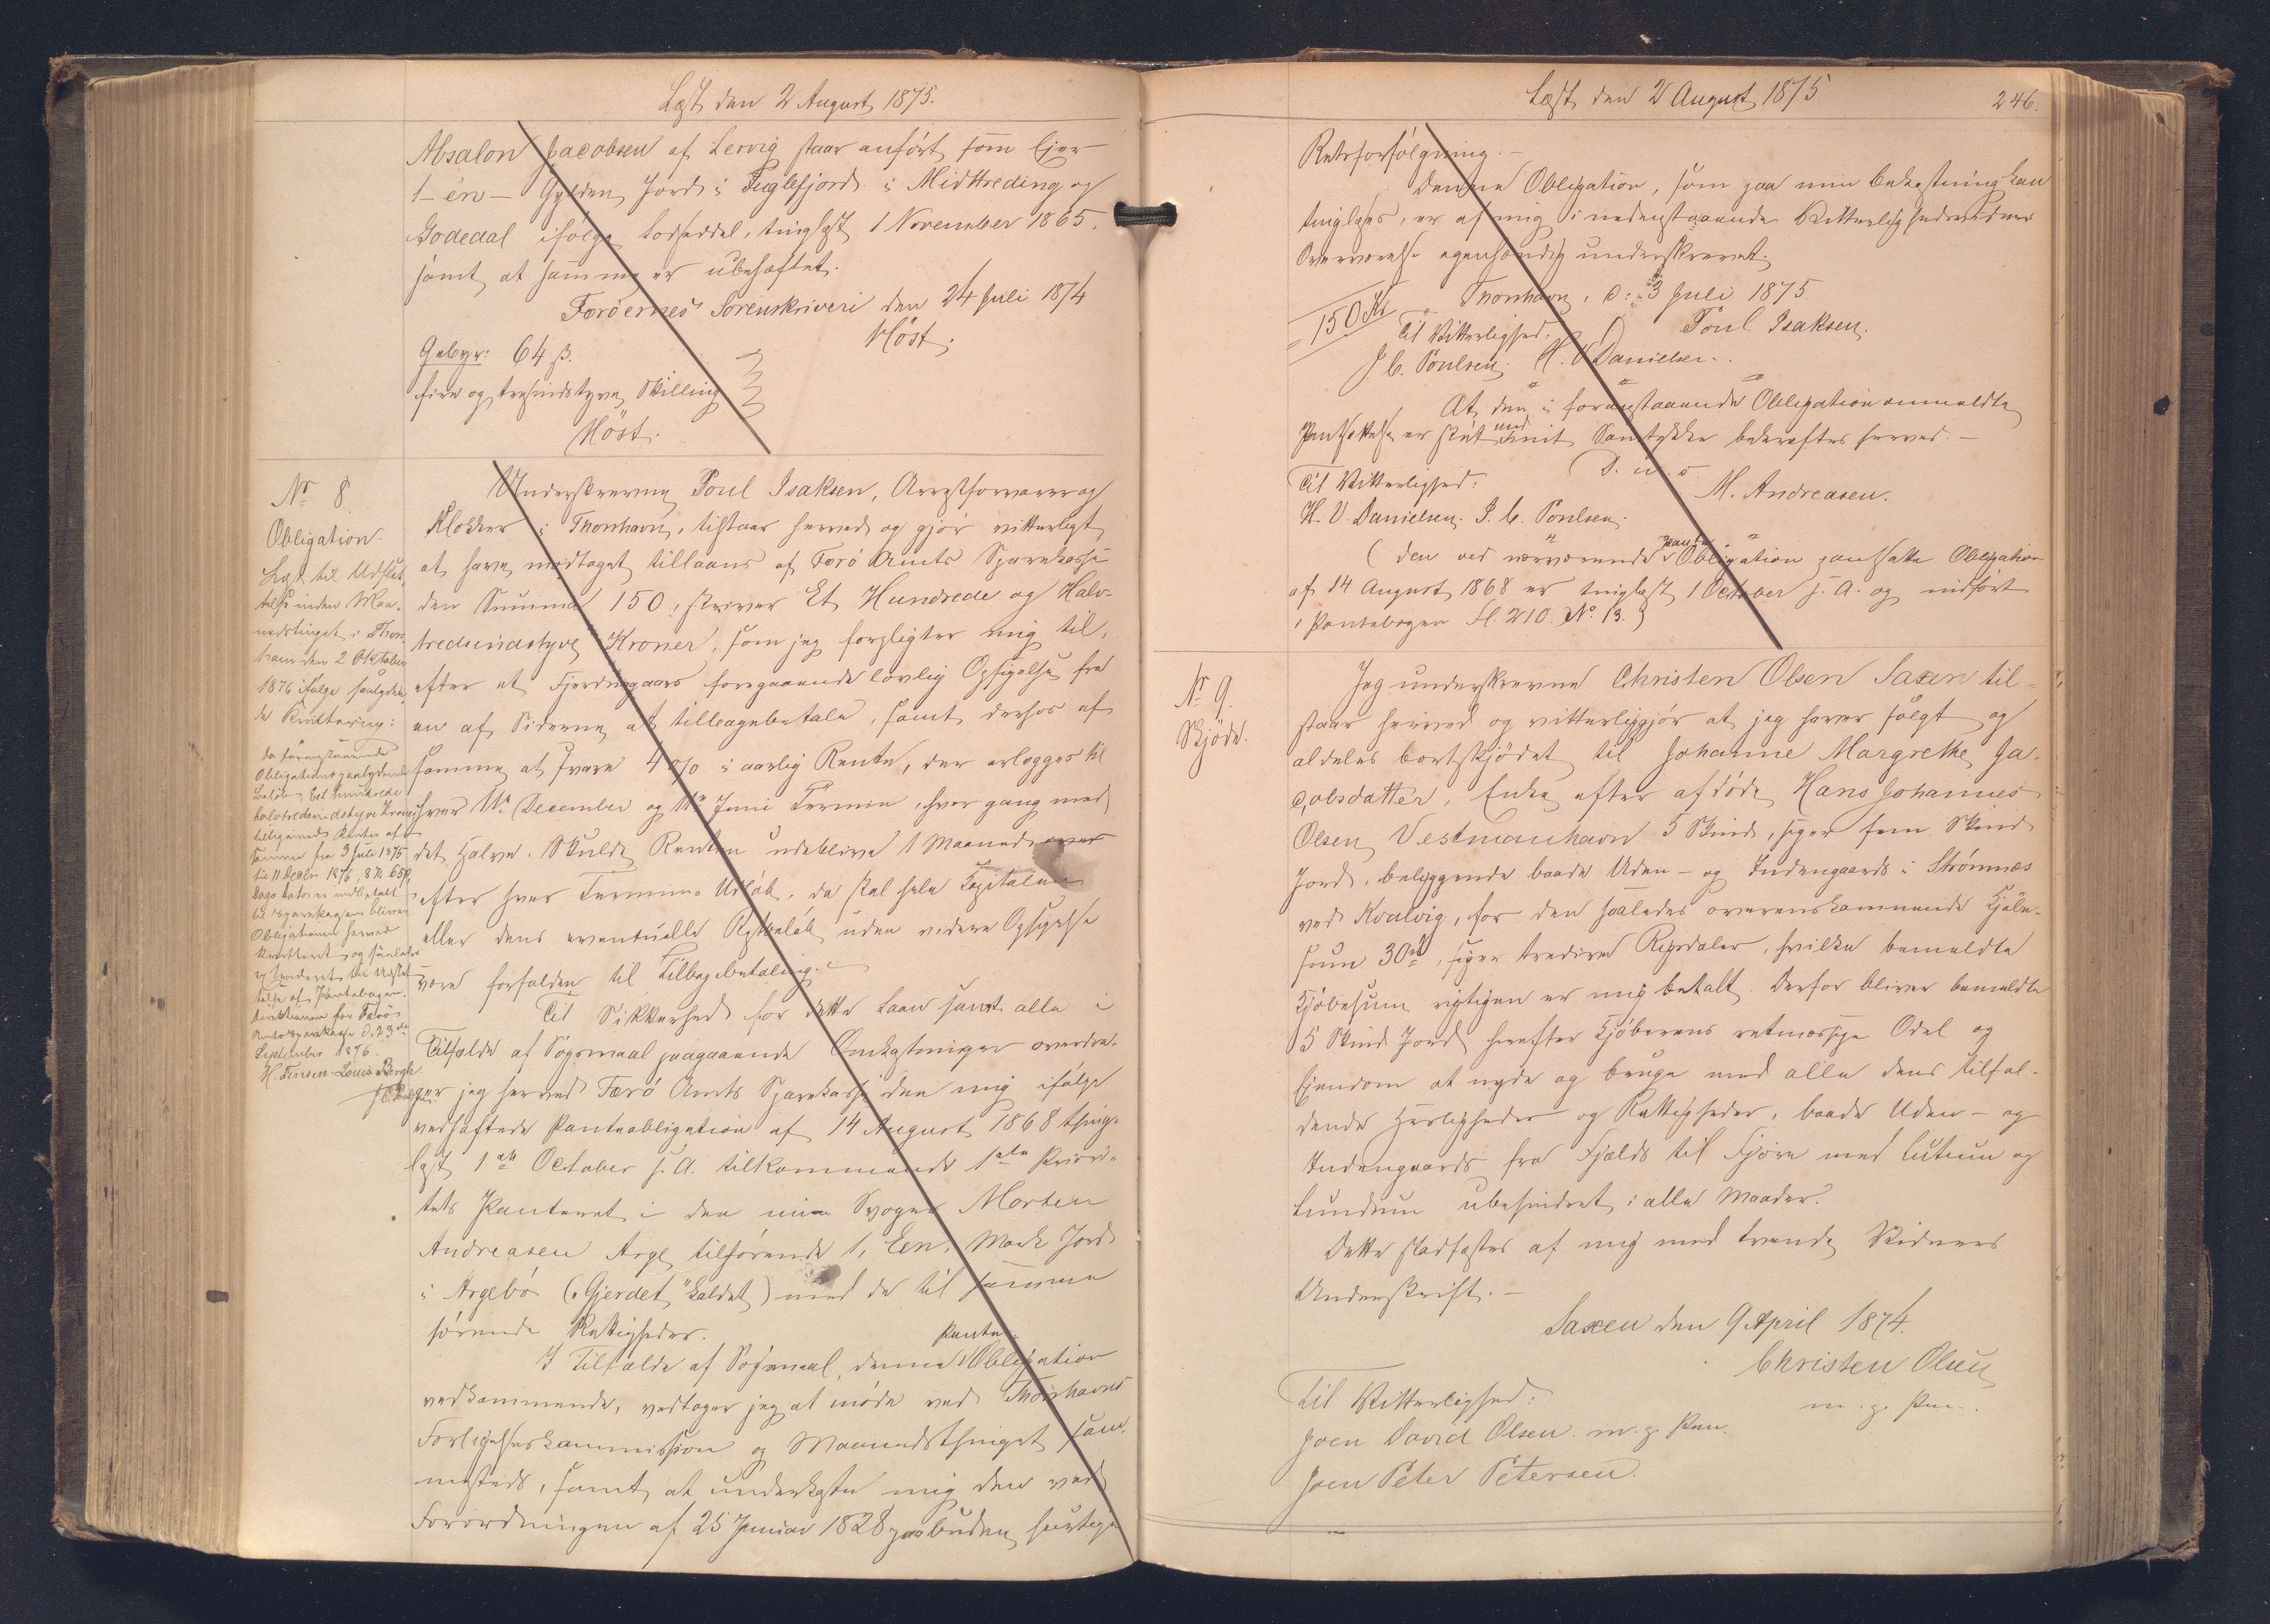 Læst den 2 August 1875.
Absalon Jacobsen af Lervig staar anført som Ejer
1-en- Gylden Jord i Fuglefjord i Midttreding og
Godedal ifølge Lodseddel, tinglæst 1 November 1865,
samt at samme er ubehæftet.
Færøernes Sorenskriveri den 24 Juli 1874
Høst.
Gebyr: 64 β.
fire og tresindstyve Skilling
Høst.
Nr 8.
Obligation.
Læst til Udslet
telse inden Maa-
nedstinget i Thors
havn den 2 Oktober
1876 ifølge saalyden
de Kvittering:
Da foranstaaende
Obligations paalydende
Beløb, Eet Hundrede
halvtredsindstyve Kroner
tilligemed Renter af
samme fra 3 Juli 1875
til 11 Decbr. 1876, 8 Kr. 65 Ø,
Dags Dato er indbetalt
til Sparekassen bliver
Obligationen herved
kvitteret og saaledes
qvitteret til Udslet-
telse af Pantebogen.
Direktionen for Færø
Amts Sparekasse d. 23de
September 1876.
H. Finsen Louis Bergh.
Underskrevne Poul Isaksen, Arrestforvarer og
Klokker i Thorshavn, tilstaar herved og gjør vitterligt
at have modtaget tillaans af Færø Amts Sparekasse
den Summa 150, skriver Et Hundrede og Halv-
tredsindstyve Kroner, som jeg forpligter mig til,
efter et Fjerdingaars foregaaende lovlig Opsigelse fra
en af Siderne at tilbagebetale, samt derhos af
samme at svare 4 o/o i aarlig Rente, der erlægges til
hver 11te December og 11te Juni Termin, hver gang med
det Halve. Skulde Renten udeblive 1 Maaned over
efter hver Termins Udløb, da skal hele Kapitalen
eller dens eventuelle Restbeløb uden videre Opsigelse
være forfalden til Tilbagebetaling.
Til Sikkerhed for dette Laan samt alle i
Tilfælde af Søgsmaal paagaaende Omkostninger overdra-
ger jeg herved Færø Amts Sparekasse den mig ifølge
vedhæftede Panteobligation af 14 August 1868 thing-
læst 1ste October s. A. tilkommende 1ste Priori-
tets Panteret i den min Svoger Morten
Andreasen Arge tilhørende 1, Een, Mark Jord
i Argebø ("Gjerdet" kaldet) med de til samme
hørende Rettigheder.
I Tilfælde af Søgsmaal, denne Pante Obligation
vedkommende, vedtager jeg at møde ved Thorshavns
Forligelseskommission og Maanedsthinget sam-
mesteds, samt at underkaste mig den ved
Forordningen af 25 Januar 1828 paabudne hurtige
Læst den 2 August 1875
246.
Retsforfølgning.-
Denne Obligation, som paa min Bekostning kan
tinglæses, er af mig i nedenstaaende Vitterlighedsvidners
Overværelse egenhændig underskrevet.
Thorshavn, d: 3 Juli 1875.
150 Kr
Til Vitterlighed.
Poul Isaksen.
J. C. Poulsen. H. V. Danielsen.
At den i foranstaaende Obligation anmeldte
Pantsættelse er sket med mit Samtykke bekræftes herved.-
D. u. s.
Til Vitterlighed.
M. Andreasen.
H. V. Danielsen. J. C. Poulsen.
(Den ved nærværende Pante Obligation pantsatte Obligation
af 14 August 1868 er tinglæst 1 October s. A. og indført
i Pantebogen Fl. 210. No. 13.)
Nr 9.
Skjøde.
Jeg underskrevne Christen Olsen Saxen til-
staar herved og vitterliggjør at jeg haver solgt og
aldeles bortskjødet til Johanne Margrethe Ja-
cobsdatter, Enke efter afdøde Hans Johannes
Olsen Vestmanhavn 5 Skind, siger fem Skind
Jord, beliggende baade Uden- og Indengaards i Strømnæs
ved Kvalvig, for den saaledes overenskommende Kjøbe-
sum 30 rd, siger tredive Rigsdaler, hvilke bemeldte
Kjøbesum rigtigen er mig betalt. Derfor bliver bemeldte
5 Skind Jord herefter Kjøberens retmæssige Odel og
Ejendom at nyde og bruge med alle dens tilfal-
dende Herligheder og Rettigheder, baade Uden- og
Indengaards fra Fjæld til Fjære med Lutum og
Lundum ubehindret i alle Maader.
Dette stadfæstes af mig med tvende Vidners
Underskrift.-
Saxen den 9 April 1874.
Christen Olsen
m. p. Pen.
Til Vitterlighed:
Joen David Olsen. m. p. Pen.
Joen Peter Petersen.